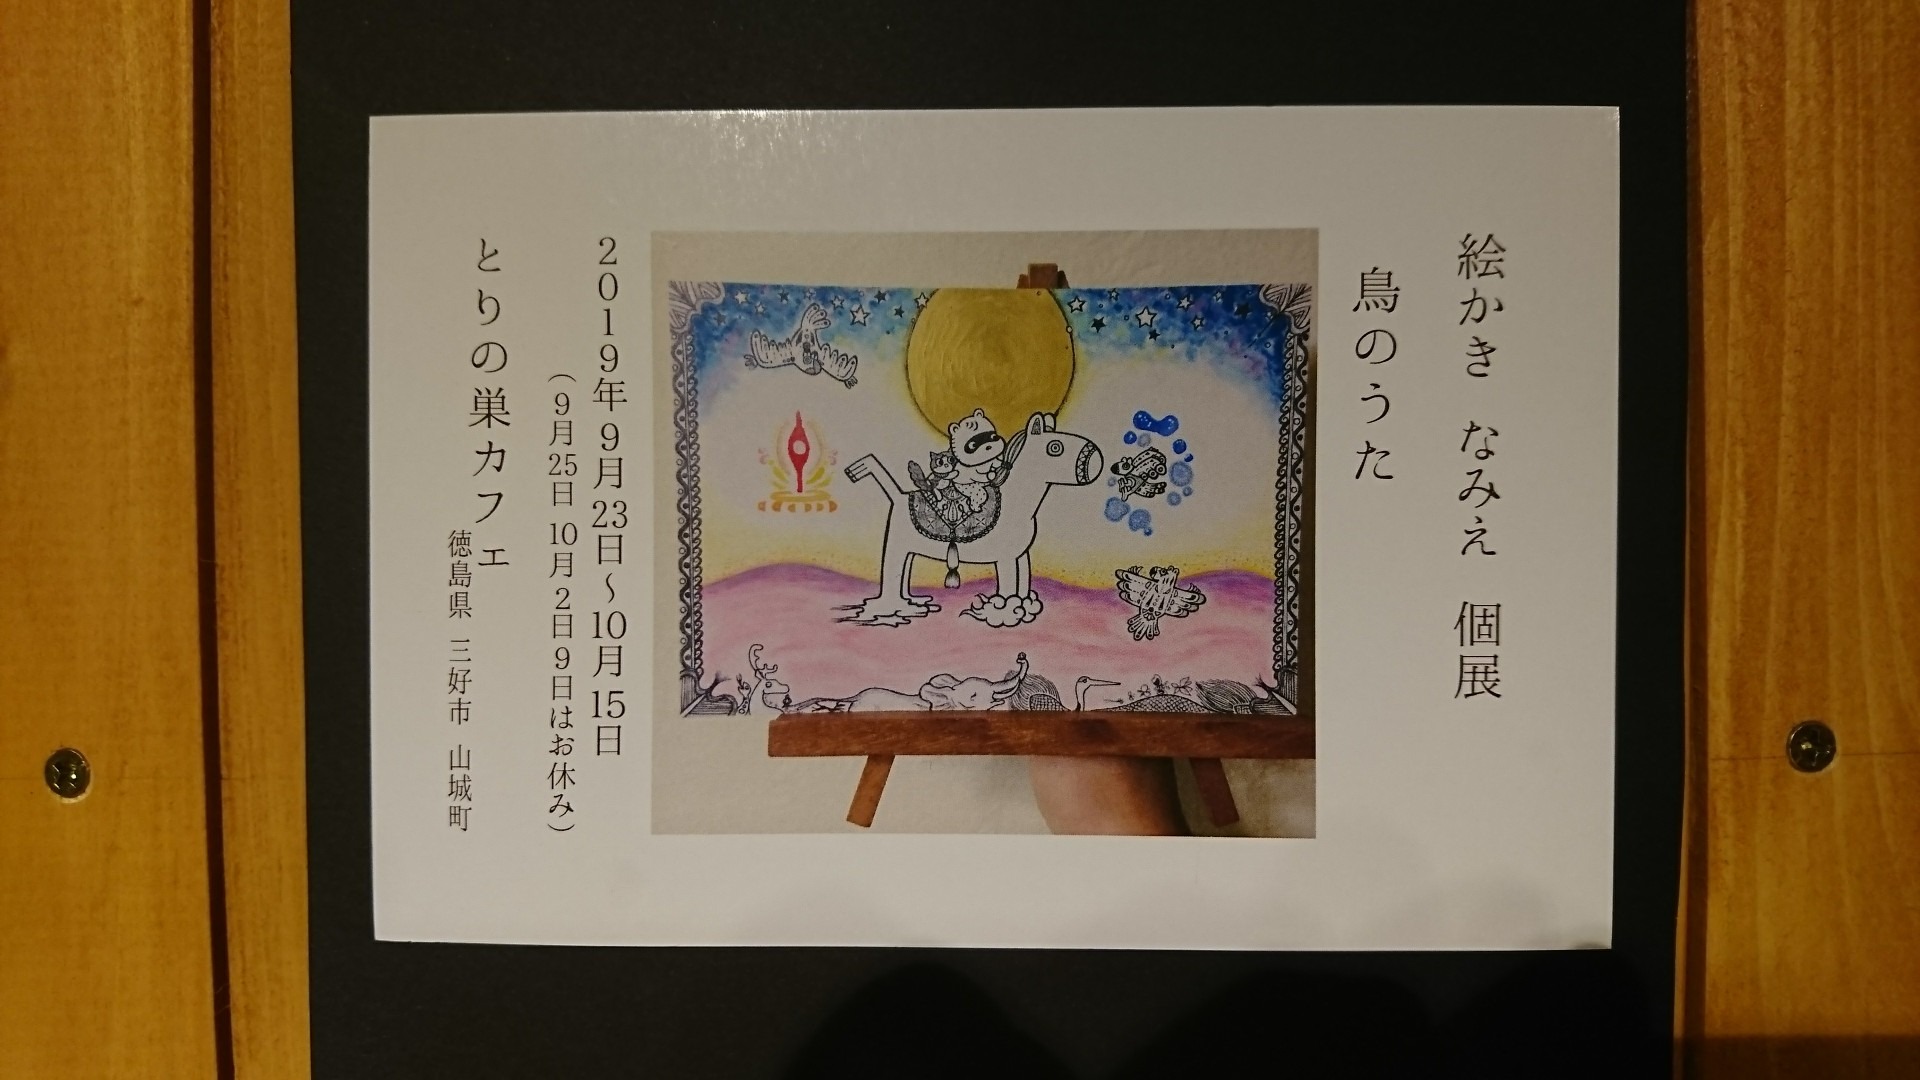 絵かき　なみえ　個展
鳥のうた
2019年9月23日～10月15日
（9月25日 10月2日9日はお休み）
とりの巣カフェ
徳島県　三好市　山城町